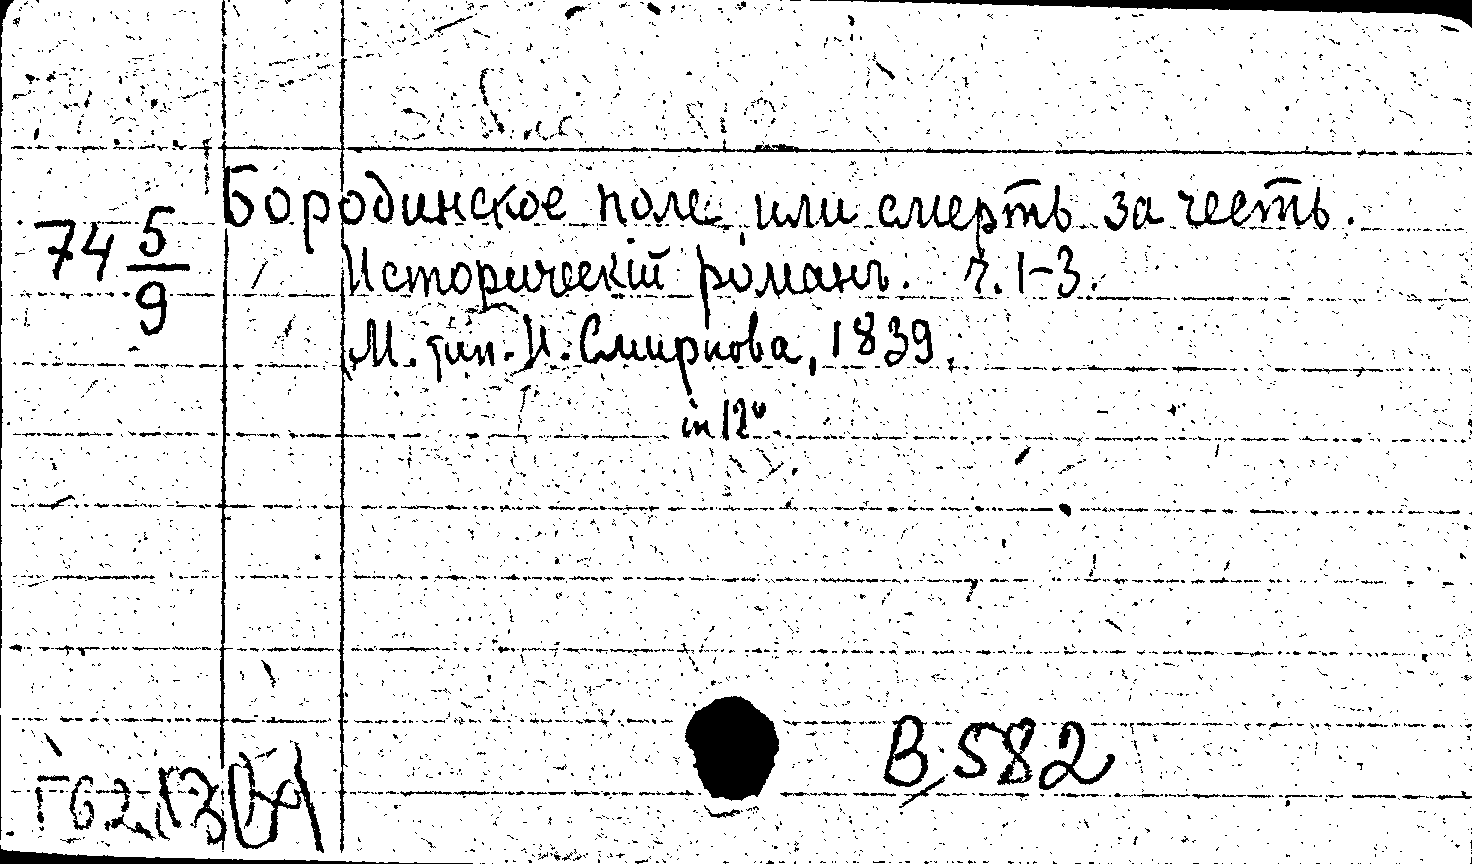 74 5/9
Бородинское поле, или смерть за честь.
Историческій романъ. ч. 1-3.
М. тип. И. Смирнова, 1839.
in 12°.
В 582